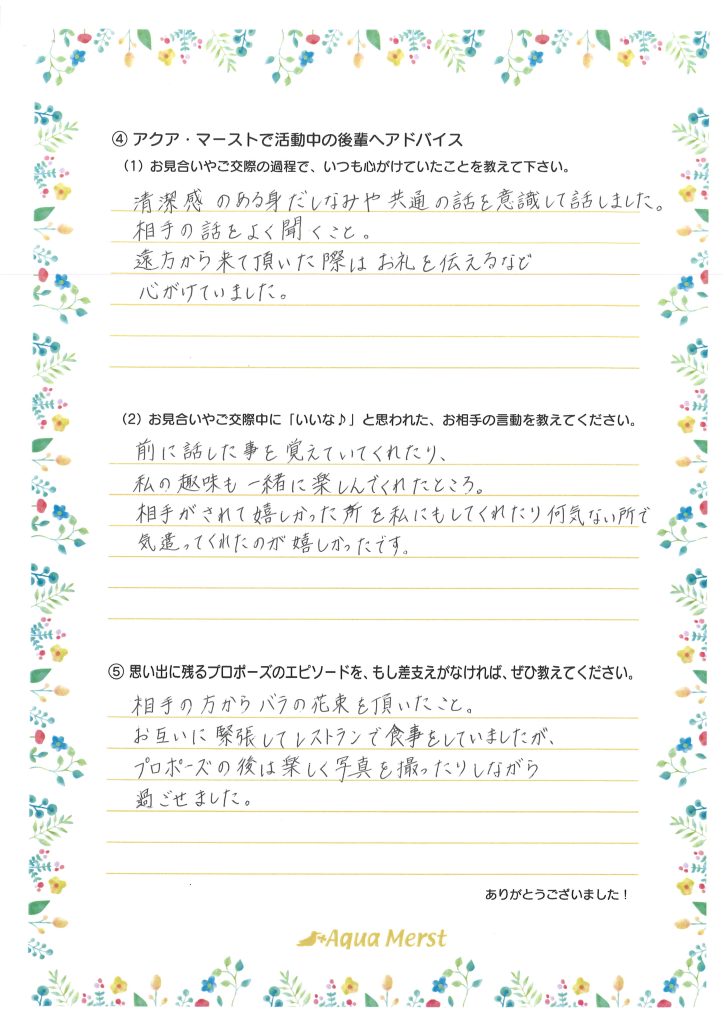 ④ アクア・マーストで活動中の後輩へアドバイス
（1）お見合いやご交際の過程で、いつも心がけていたことを教えて下さい。
清潔感のある身だしなみや共通の話を意識して話しました。
相手の話をよく聞くこと。
遠方から来て頂いた際はお礼を伝えるなど
心がけていました。
（2）お見合いやご交際中に「いいな♪」と思われた、お相手の言動を教えてください。
前に話した事を覚えていてくれたり、
私の趣味も一緒に楽しんでくれたところ。
相手がされて嬉しかった所を私にもしてくれたり何気ない所で
気遣ってくれたのが嬉しかったです。
⑤ 思い出に残るプロポーズのエピソードを、もし差支えがなければ、ぜひ教えてください。
相手の方からバラの花束を頂いたこと。
お互いに緊張してレストランで食事をしていましたが、
プロポーズの後は楽しく写真を撮ったりしながら
過ごせました。
ありがとうございました！
Aqua Merst